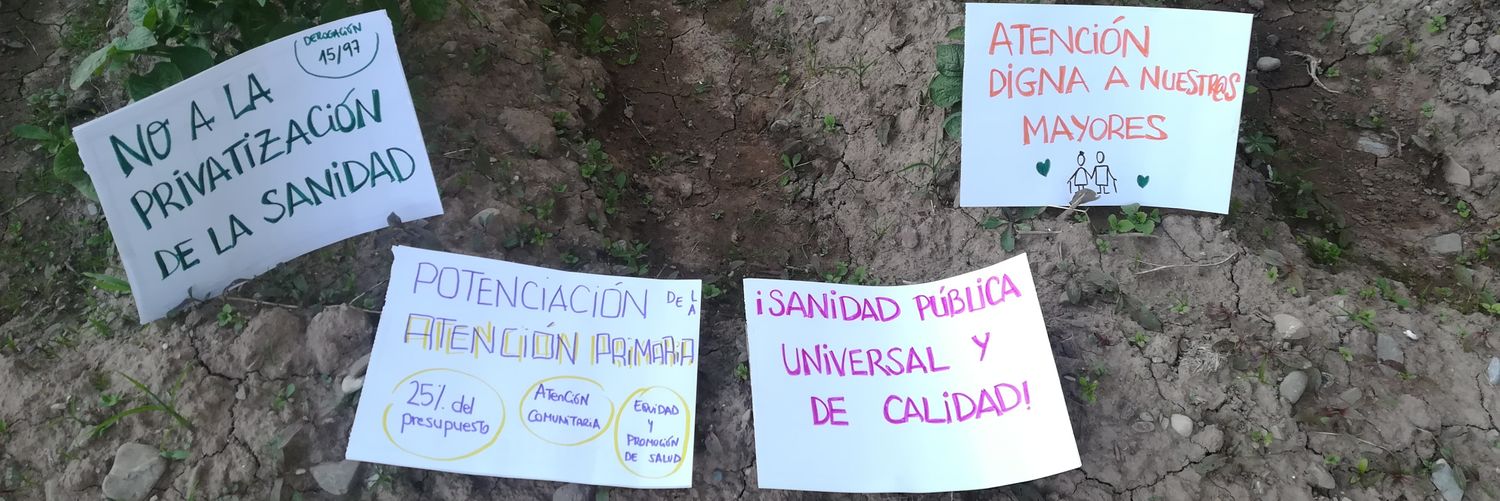 DEROGACIÓN
15/97
NO A LA
PRIVATIZACIÓN
DE LA SANIDAD
POTENCIACIÓN DE LA
ATENCIÓN PRIMARIA
25% del
presupuesto
ATENCIÓN
COMUNITARIA
EQUIDAD
Y
PROMOCIÓN
DE SALUD
¡SANIDAD PÚBLICA
UNIVERSAL Y
DE CALIDAD!
ATENCIÓN
DIGNA A NUESTR@S
MAYORES